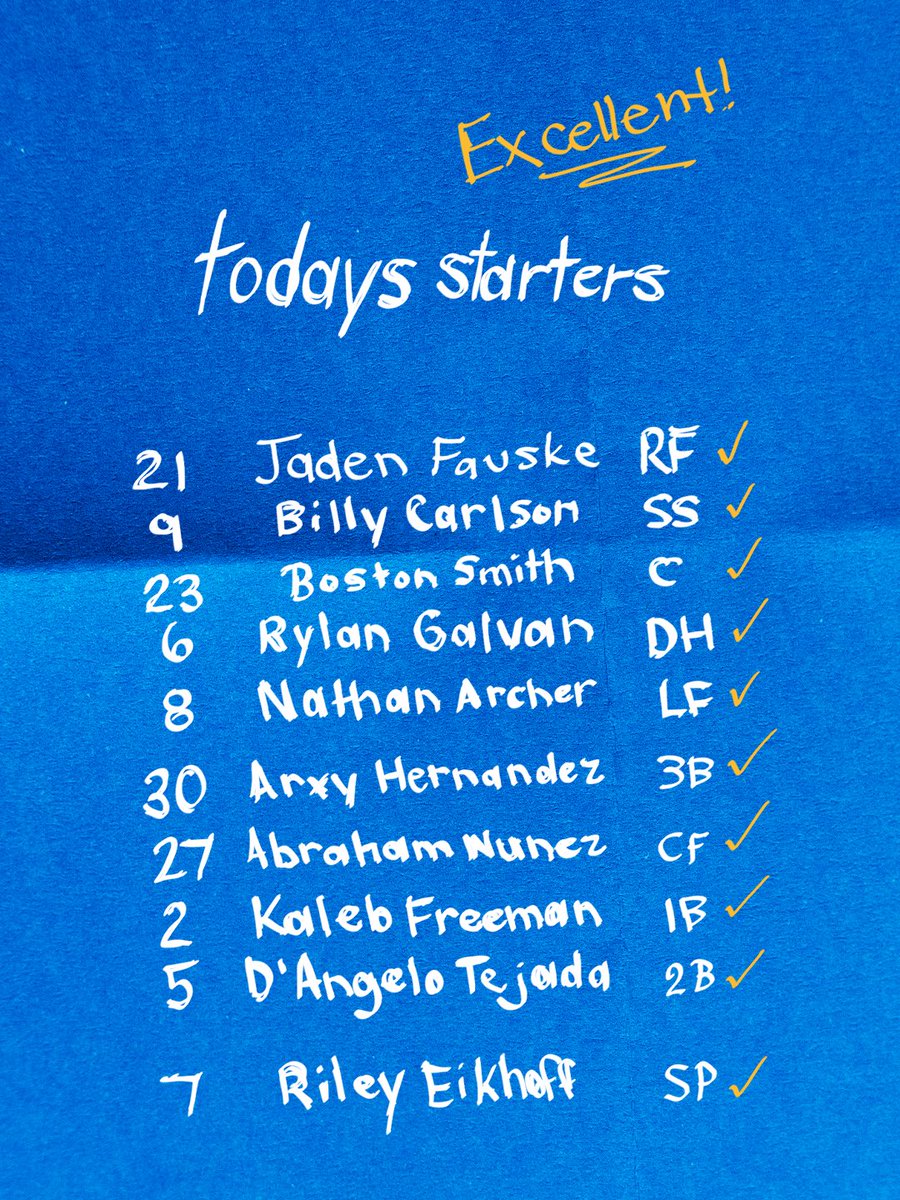 Excellent!
todays starters
21 Jaden Fauske RF ✓
9 Billy Carlson SS ✓
23 Boston Smith C ✓
6 Rylan Galvan DH ✓
8 Nathan Archer LF ✓
30 Arxy Hernandez 3B ✓
27 Abraham Nunez CF ✓
2 Kaleb Freeman 1B ✓
5 D'Angelo Tejada 2B ✓
7 Riley Eikhoff SP ✓